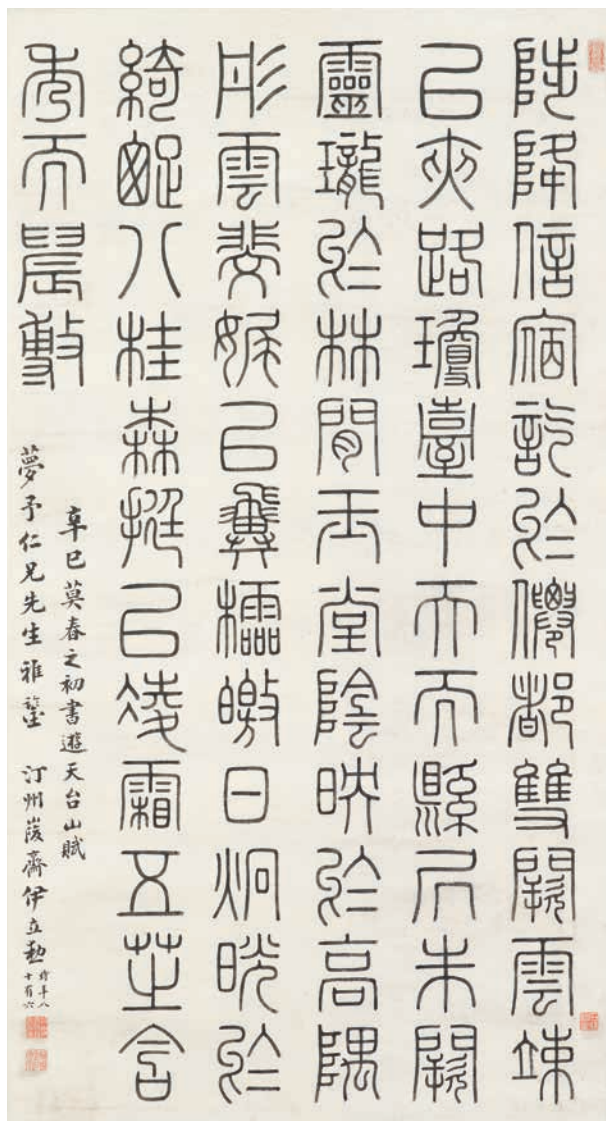 陟降信宿訖於僊都雙闕雲竦
㠯夾路瓊臺中天而縣凥朱闕
靈瓏於林間玉堂陰映於高隅
彤雲斐娓㠯翼櫺皦日炯晄於
綺疏八桂森挺㠯淩霜五芝含
秀而晨敷
辛巳莫春之初書遊天台山賦
夢予仁兄先生雅鑒 汀州峻齋伊立勳時年八十有六